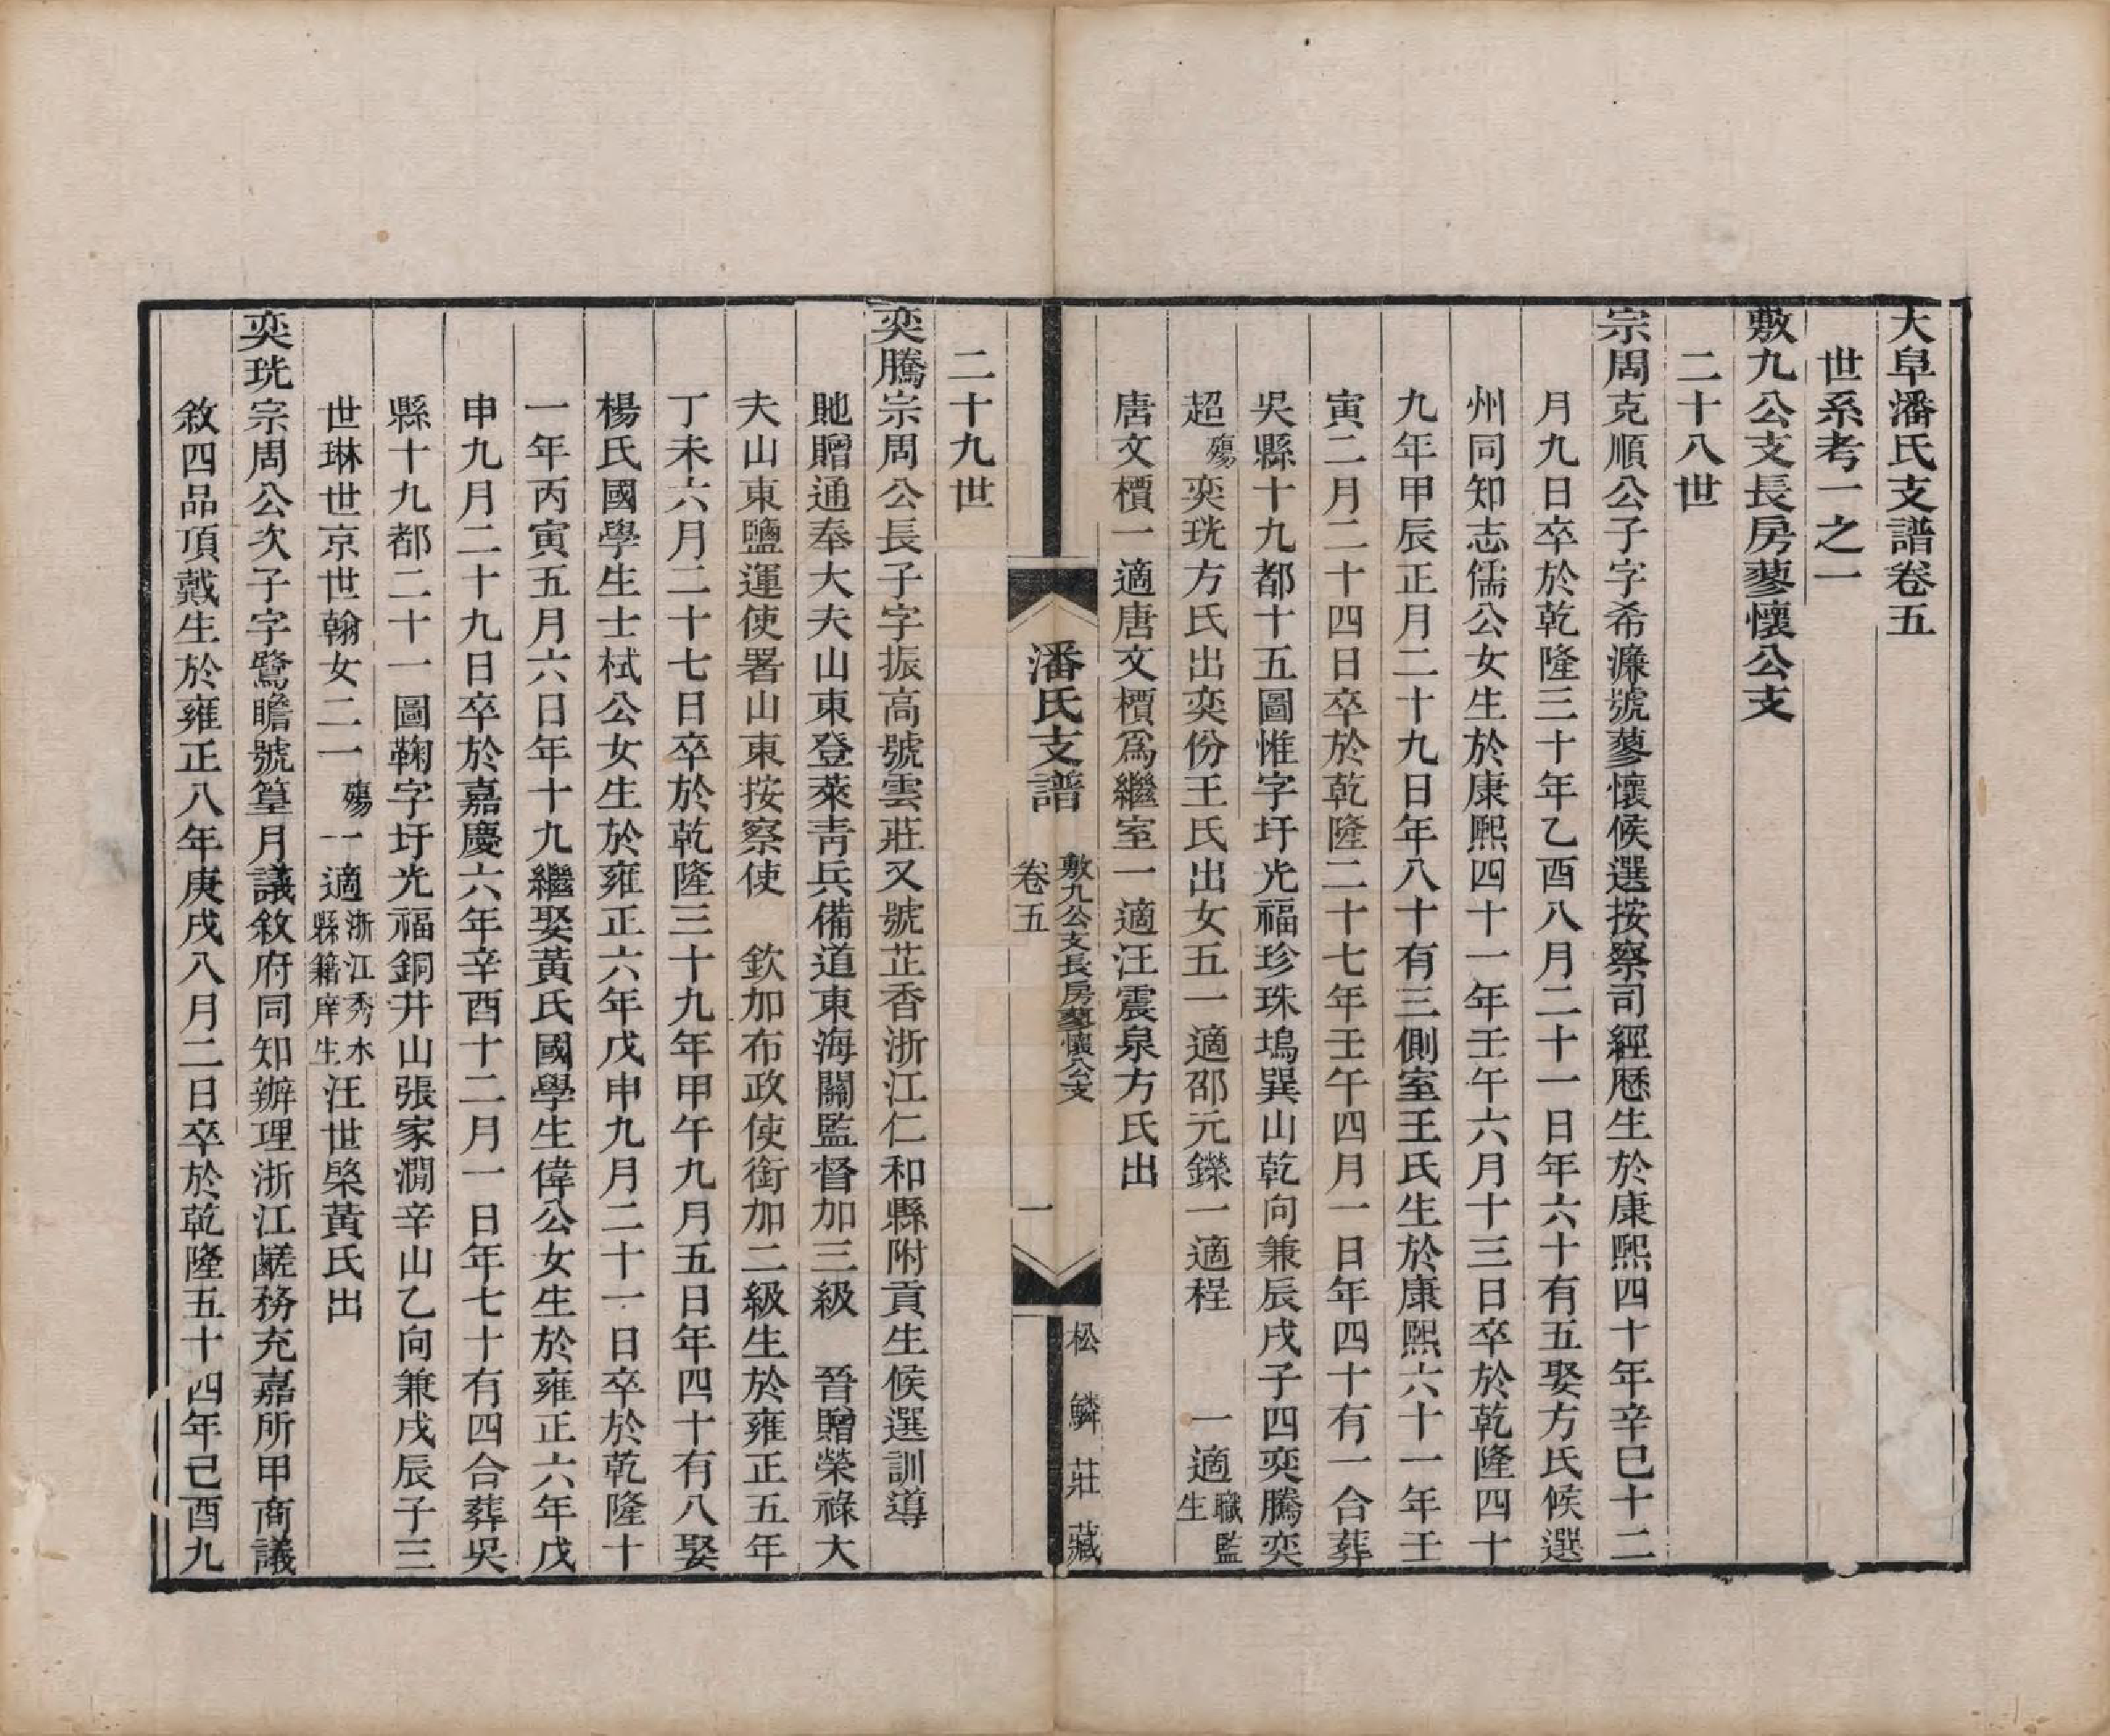 大阜潘氏支譜卷五
世系考一之一
敷九公支長房蓼懷公支
二十八世
宗周克順公子字希濂號蓼懷候選按察司經歷生於康熙四十年辛巳十二
月九日卒於乾隆三十年乙酉八月二十一日年六十有五娶方氏候選
州同知志儒公女生於康熙四十一年壬午六月十三日卒於乾隆四十
九年甲辰正月二十九日年八十有三側室王氏生於康熙六十一年壬
寅二月二十四日卒於乾隆二十七年壬午四月一日年四十有一合葬
吳縣十九都十五圖惟字圩光福珍珠塢巽山乾向兼辰戌子四奕騰奕
超殤奕珖方氏出奕份王氏出女五一適邵元鑅一適程　一適職監生
唐文檟一適唐文檟爲繼室一適汪震泉方氏出
潘氏支譜
敷九公支長房蓼懷公支
卷五
一
松鱗莊藏
二十九世
奕騰宗周公長子字振高號雲莊又號芷香浙江仁和縣附貢生候選訓導
貤贈通奉大夫山東登萊青兵備道東海關監督加三級　晉贈榮祿大
夫山東鹽運使署山東按察使　欽加布政使銜加二級生於雍正五年
丁未六月二十七日卒於乾隆三十九年甲午九月五日年四十有八娶
楊氏國學生士栻公女生於雍正六年戊申九月二十一日卒於乾隆十
一年丙寅五月六日年十九繼娶黃氏國學生偉公女生於雍正六年戊
申九月二十九日卒於嘉慶六年辛酉十二月一日年七十有四合葬吳
縣十九都二十一圖鞠字圩光福銅井山張家澗辛山乙向兼戌辰子三
世琳世京世翰女二一殤一適浙江秀水縣籍庠生汪世榮黃氏出
奕珖宗周公次子字鷺瞻號篁月議敘府同知辦理浙江鹺務充嘉所甲商議
敘四品頂戴生於雍正八年庚戌八月二日卒於乾隆五十四年己酉九